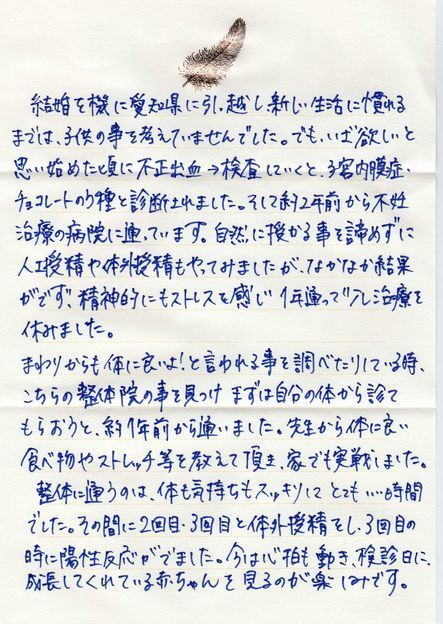 結婚を機に愛知県に引っ越し、新しい生活に慣れる
までは、子供の事を考えていませんでした。でも、いざ欲しいと
思い始めた頃に不正出血→検査していくと、子宮内膜症・
チョコレートのう種と診断されました。そして約2年前から不妊
治療の病院に通っています。自然に授かる事を諦めずに
人工授精や体外授精もやってみましたが、なかなか結果
がでず、精神的にもストレスを感じ1年通って少し治療を
休みました。
まわりからも体に良いよ!と言われる事を調べたりしている時、
こちらの整体院の事を見つけまずは自分の体から診て
もらおうと、約1年前から通いました。先生から体に良い
食べ物やストレッチ等を教えて頂き、家でも実戦しました。
整体に通うのは、体も気持ちもスッキリしてとてもいい時間
でした。その間に2回目・3回目と体外授精をし、3回目の
時に陽性反応がでました。今は心拍も動き、検診日に、
成長してくれている赤ちゃんを見るのが楽しみです。